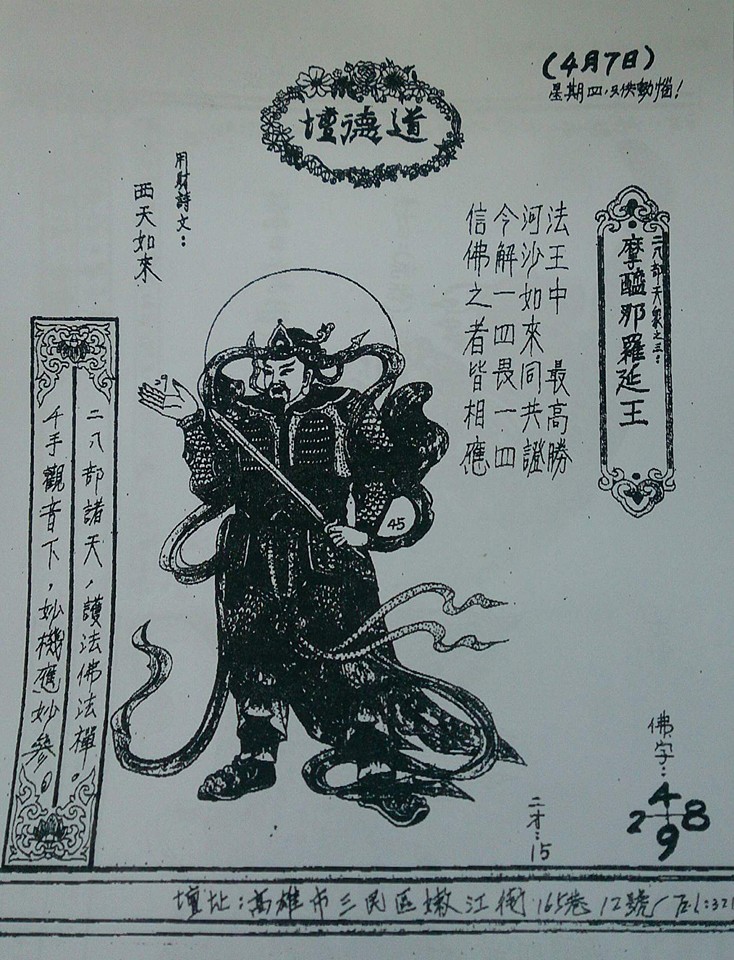 (4月7日)
壇德道
二八部天眾之三：
摩醯那羅延王
法王中 最高勝
河沙如來同共證
今解一四畏一四
信佛之者皆相應
用財詩文：
西天如來
二八部諸天，護法佛法禪。
千手觀音下，妙機應妙參。
45
佛字：
4
2 8
9
二才：15
壇址：高雄市三民區嫩江街165巷12號